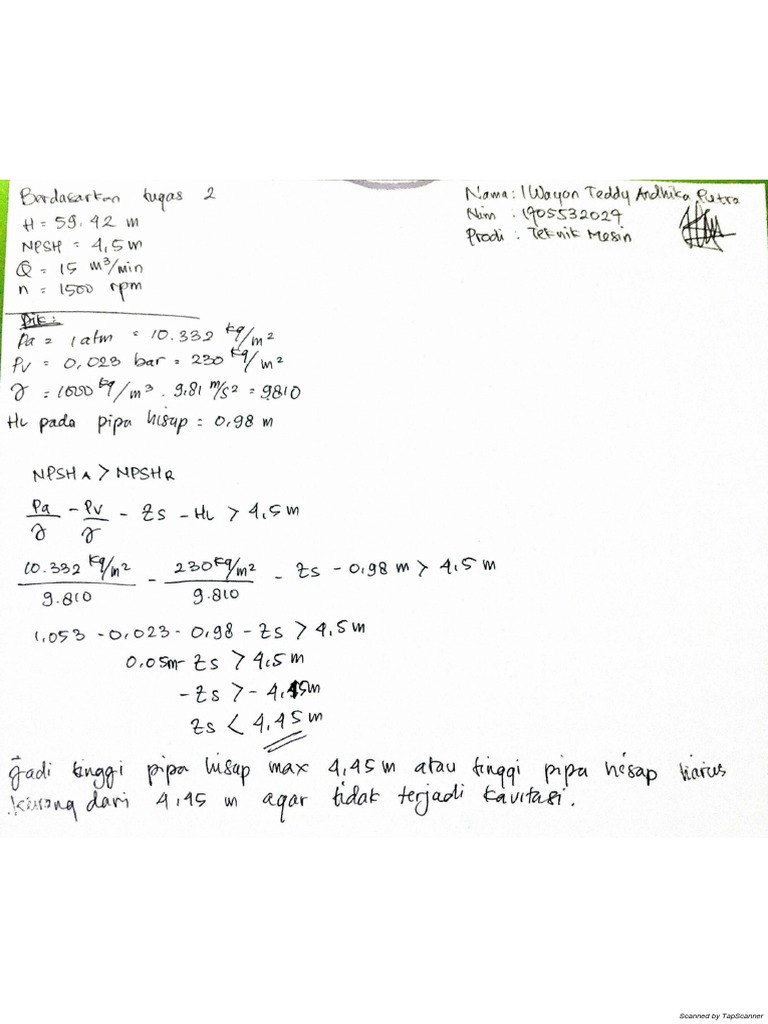 Berdasarkan tugas 2
H = 59.42 m
NPSH = 4,5 m
Q = 15 m³/min
n = 1500 rpm
Nama : I Wayan Teddy Ardhika Putra
Nim : 1905532029
Prodi : Teknik Mesin
Dik :
Pa = 1 atm = 10.332 kg/m²
Pv = 0,023 bar = 230 kg/m²
γ = 1000 kg/m³ . 9,81 m/s² = 9810
HL pada pipa hisap = 0,98 m
NPSHA > NPSHR
Pa/γ - Pv/γ - Zs - HL > 4,5 m
10.332 kg/m²/9.810 - 230 kg/m²/9.810 - Zs - 0,98 m > 4,5 m
1,053 - 0,023 - 0,98 - Zs > 4,5 m
0,05m - Zs > 4,5 m
-Zs > - 4,45m
Zs < 4,45 m
Jadi tinggi pipa hisap max 4,45 m atau tinggi pipa hisap harus
kurang dari 4,45 m agar tidak terjadi kavitasi.
Scanned by TapScanner